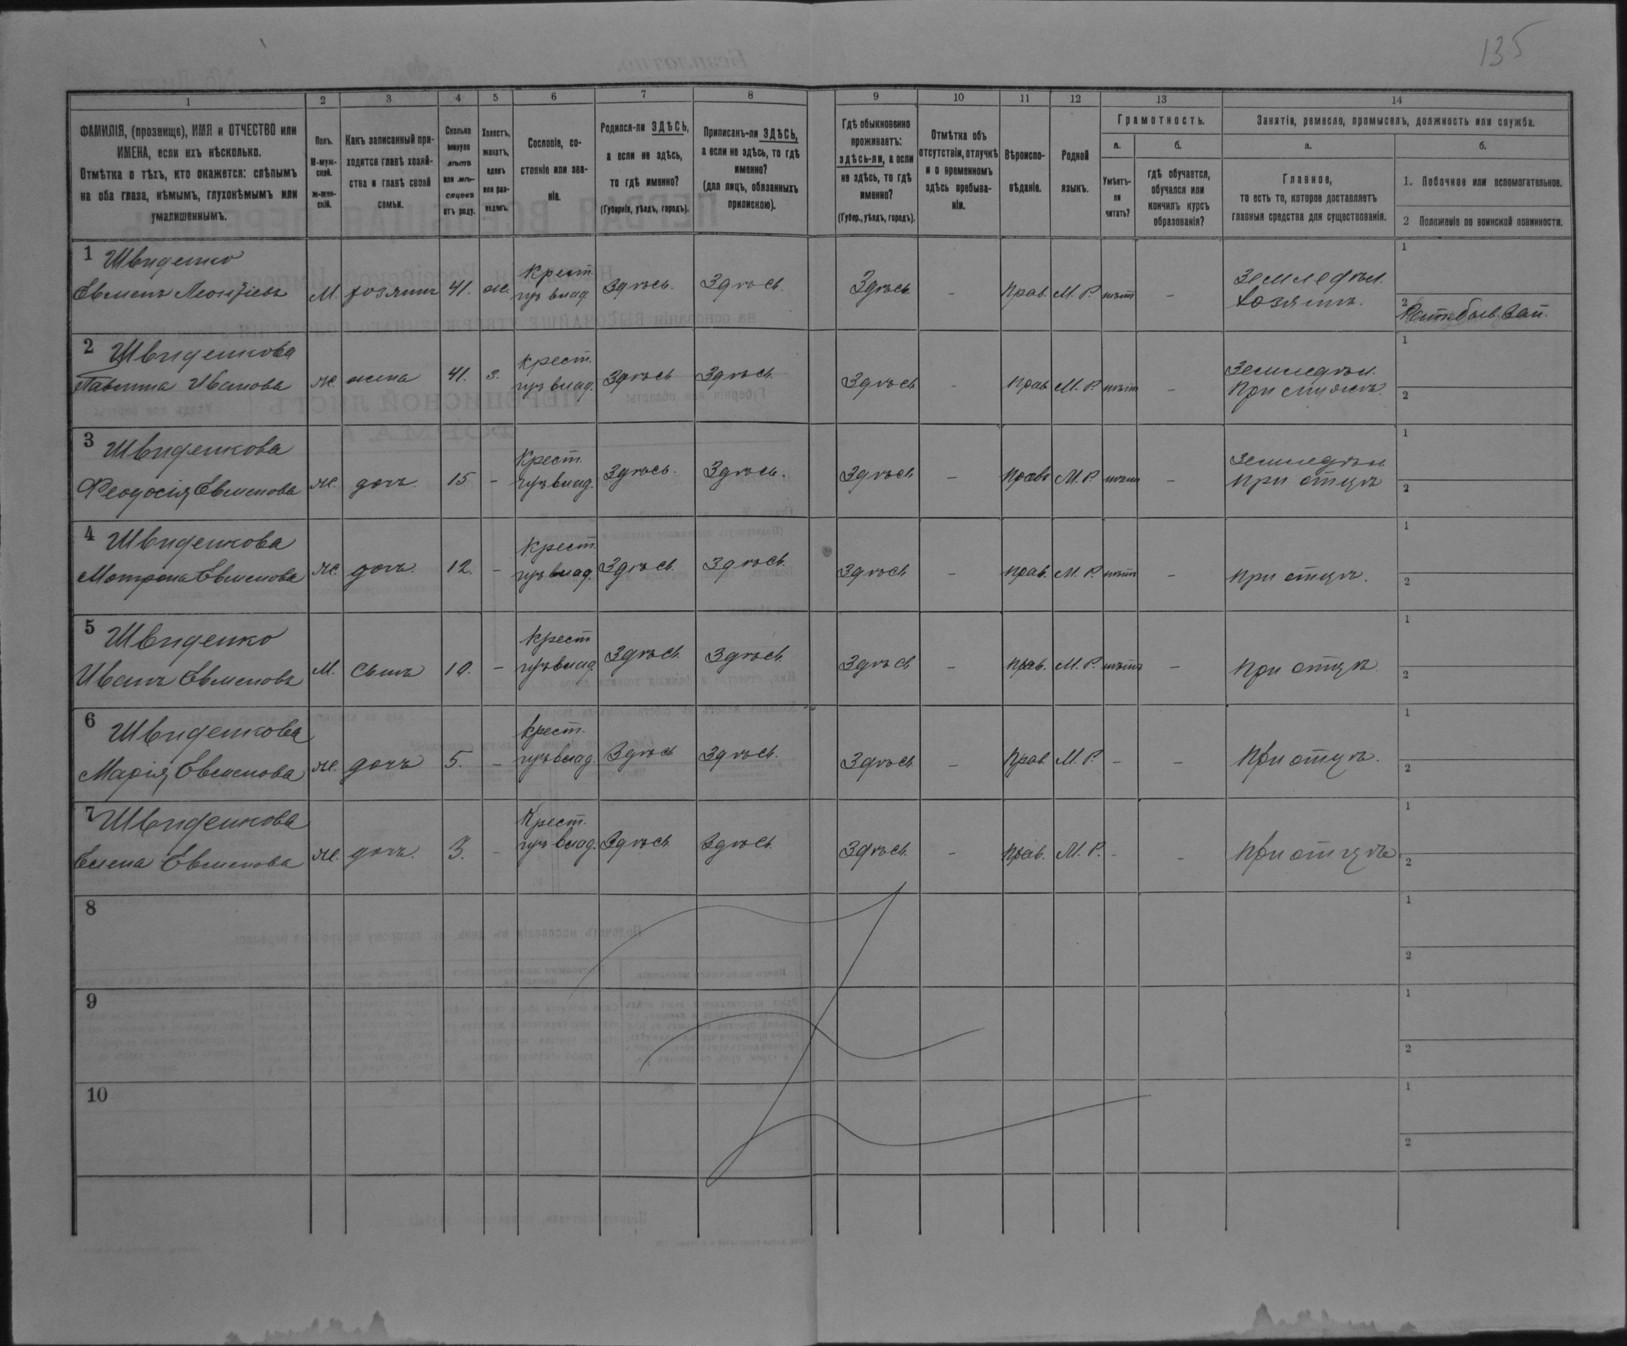 135
1
2
3
4
5
6
7
8
9
10
11
12
13
14
ФАМИЛІЯ, (прозвище), ИМЯ и ОТЧЕСТВО или
ИМЕНА, если ихъ нѣсколько.
Отмѣтка о тѣхъ, кто окажется: слѣпымъ
на оба глаза, нѣмымъ, глухонѣмымъ или
умалишеннымъ.
Полъ.
М-муж-
ской.
ж-жен-
скій.
Какъ записанный при-
ходится главѣ хозяй-
ства и главѣ своей
семьи.
Сколько
минуло
лѣтъ
или мѣ-
сяцевъ
отъ роду.
Холостъ,
женатъ,
вдовъ
или раз-
веденъ.
Сословіе, со-
стояніе или зва-
ніе.
Родился-ли ЗДѢСЬ,
а если не здѣсь,
то гдѣ именно?
(Губернія, уѣздъ, городъ).
Приписанъ-ли ЗДѢСЬ,
а если не здѣсь, то гдѣ
именно?
(для лицъ, обязанныхъ
припискою).
Гдѣ обыкновенно
проживаетъ:
здѣсь-ли, а если
не здѣсь, то гдѣ
именно?
(Губер., уѣздъ, городъ).
Отмѣтка объ
отсутствіи, отлучкѣ
и о временномъ
здѣсь пребыва-
ніи.
Вѣроиспо-
вѣданіе.
Родной
языкъ.
Грамотность.
а.
Умѣетъ-
ли
читать?
б.
гдѣ обучается,
обучался или
кончилъ курсъ
образованія?
Занятія, ремесло, промыселъ, должность или служба.
а.
Главное,
то есть то, которое доставляетъ
главныя средства для существованія.
б.
1. Побочное или вспомогательное.
2 Положеніе по воинской повинности.
1 Швиденко
Евменъ Леонтіевъ М. хозяинъ 41. ж. Крест. Здѣсь. Здѣсь. Здѣсь – Прав. М. Р. нѣтъ – Земледѣл.
Хозяинъ.
1
2
2 Швиденкова
Ивановна ж. жена 41. з. Крест. Здѣсь Здѣсь. Здѣсь – Прав М. Р. нѣтъ – Земледѣл.
При мужѣ.
1
2
3 Швиденкова
Феодосія Евменова ж. дочь 15 – Крест. Здѣсь. Здѣсь. Здѣсь – Прав М. Р. нѣтъ – Земледѣл
при отцѣ
1
2
4 Швиденкова
Матрона Евменова ж. дочь. 12. – Крест. Здѣсь. Здѣсь. Здѣсь – прав. М. Р. нѣтъ – при отцѣ.
1
2
5 Швиденко
Иванъ Евменовъ М. сынъ 10. – Крест Здѣсь Здѣсь Здѣсь – прав. М. Р. нѣтъ – при отцѣ
1
2
6 Швиденкова
Марія Евменова ж. дочь 5. – Крест. Здѣсь Здѣсь. Здѣсь – Прав М. Р. – – При отцѣ.
1
2
7 Швиденкова
Елена Евменова ж. дочь. 3. – Крест. Здѣсь Здѣсь Здѣсь. – Прав. М. Р. – – При отцѣ
2
8
1
2
9
1
2
10
1
2